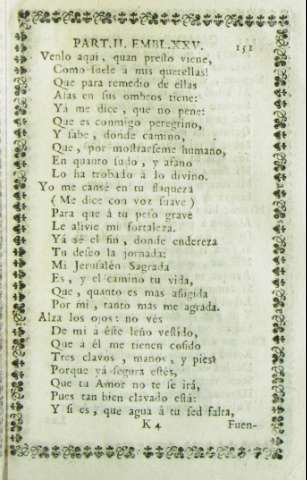 PART. II. EMBL. XXV. 151
Venlo aqui, quan presto viene,
Como suele a mis querellas!
Que para remedio de ellas
Alas en sus ombros tiene:
Yá me dice, que no pene:
Que es conmigo peregrino,
Y sabe, donde camino,
Que, por mostrarseme humano,
En quanto sudo, y afano
Lo ha trobado à lo divino.
Yo me cansè en tu flaqueza
(Me dice con voz suave)
Para que à tu peso grave
Le alivie mi fortaleza.
Yá sè el fin, donde endereza
Tu deseo la jornada:
Mi Jerusalèn Sagrada
Es, y el camino tu vida,
Que, quanto es mas afligida
Por mi, tanto más me agrada.
Alza los ojos: no vès
De mi a èste leño vestido,
Que à èl me tienen cosido
Tres clavos, manos, y pies?
Porque yá segura estès,
Que tu Amor no te se irá,
Pues tan bien clavado està:
Y si es, que agua à tu sed falta,
K 4 Fuen-